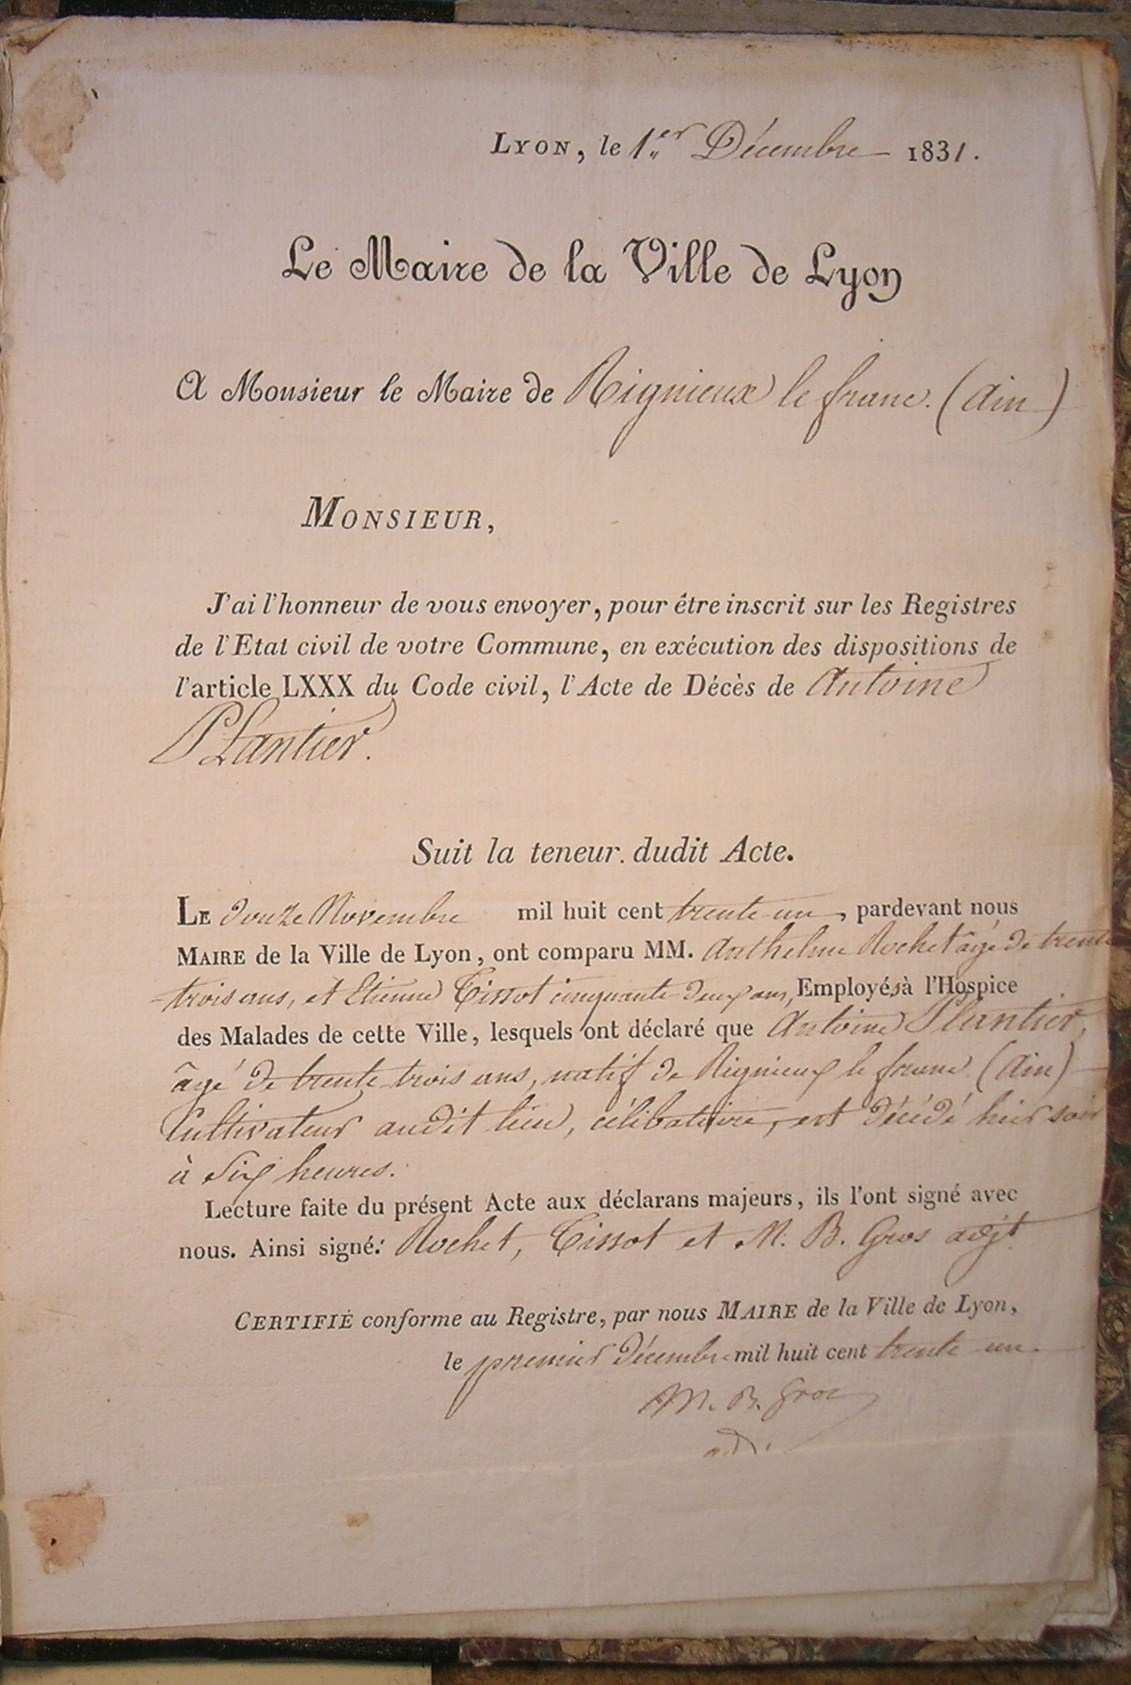 LYON, le 1.er Décembre 1831.
Le Maire de la Ville de Lyon
A Monsieur le Maire de Rignieux le franc. (Ain)
MONSIEUR,
J'ai l'honneur de vous envoyer, pour être inscrit sur les Registres
de l'Etat civil de votre Commune, en exécution des dispositions de
l'article LXXX du Code civil, l'Acte de Décès de Antoine
Plantier.
Suit la teneur dudit Acte.
LE douze Novembre mil huit cent trente-un, pardevant nous
MAIRE de la Ville de Lyon, ont comparu MM. Anthelme Rochet âgé de trente
-trois ans, et Etienne Tissot cinquante deux ans, Employés à l'Hospice
des Malades de cette Ville, lesquels ont déclaré que Antoine Plantier,
âgé de trente-trois ans, natif de Rignieux le franc (Ain)
Cultivateur audit lieu, célibataire, est décédé hier soir
à Six heures.
Lecture faite du présent Acte aux déclarans majeurs, ils l'ont signé avec
nous. Ainsi signé: Rochet, Tissot et M. B. Gros adjt
CERTIFIÉ conforme au Registre, par nous MAIRE de la Ville de Lyon,
le premier Décembre mil huit cent trente-un.
M. B. Gros
adj.